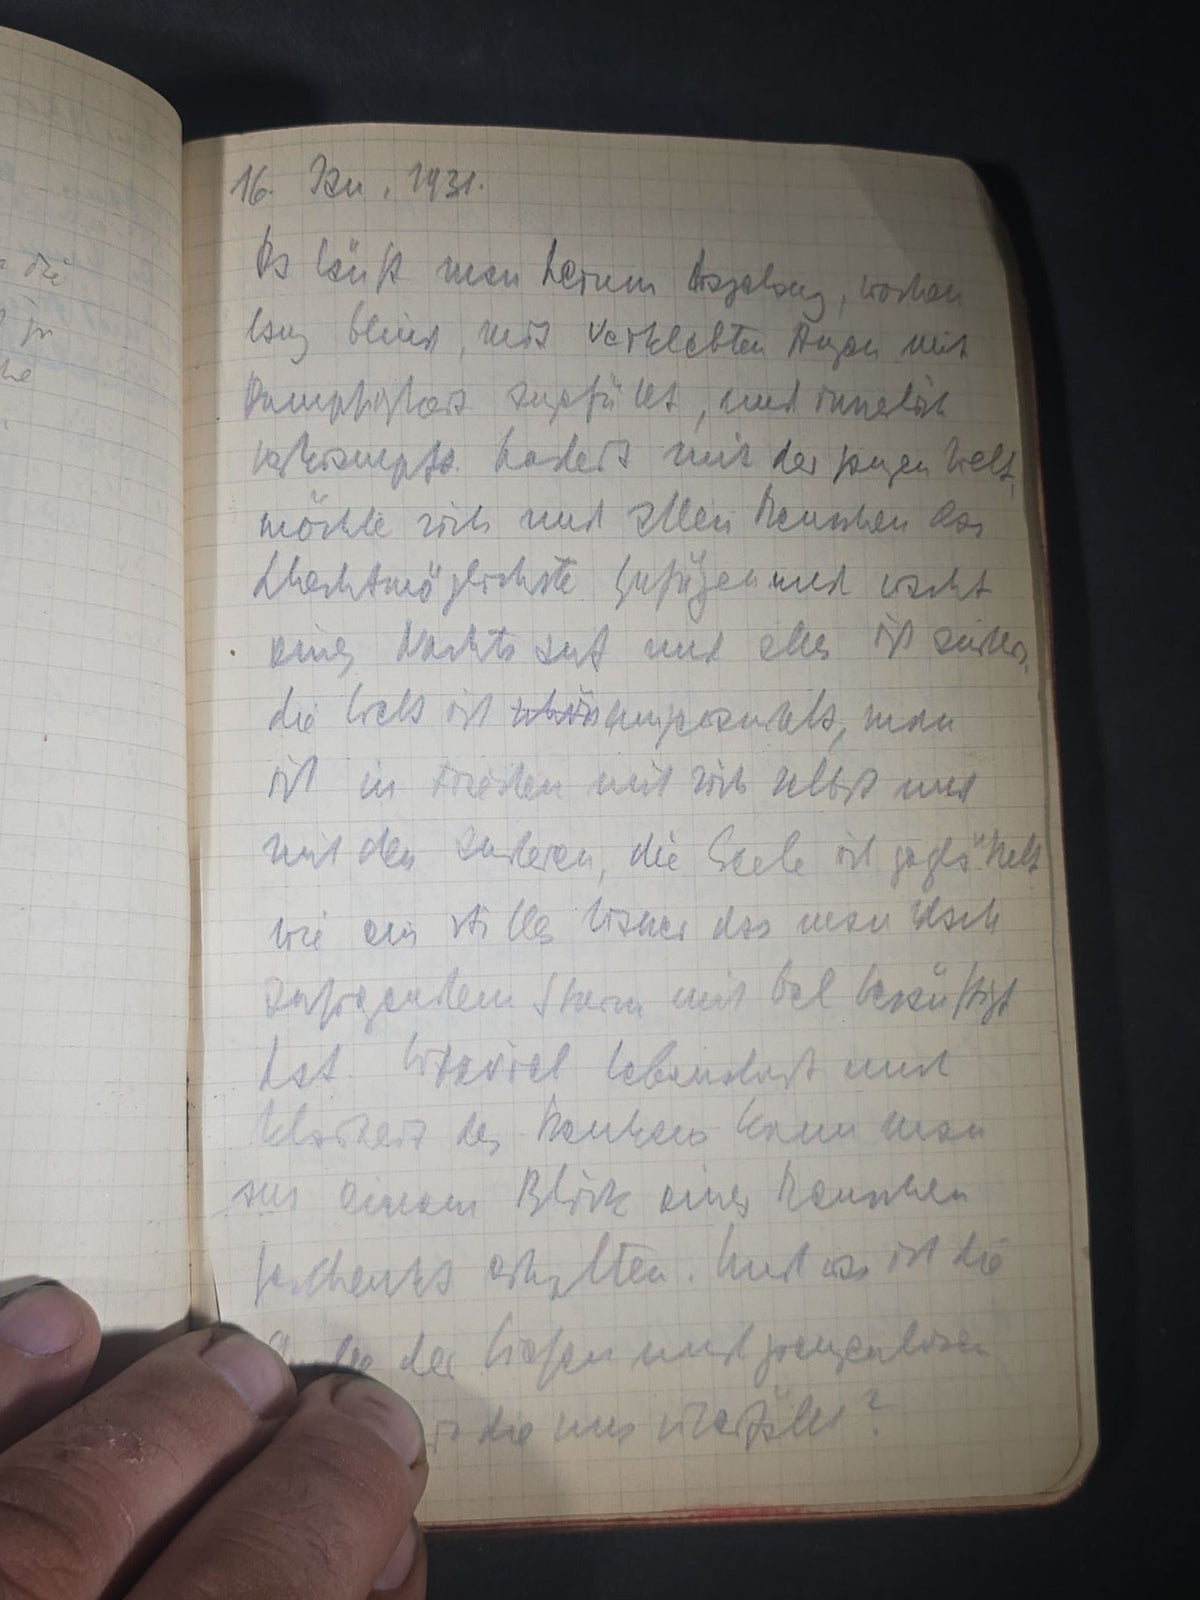 die
16. Jan. 1931.
Da läuft man herum tagelang, wochen
lang blind, mit verklebten Augen mit
Dumpfigkeit angefüllt, und innerlich
verkrampft. hadert mit der ganzen Welt,
möchte sich und allen Menschen das
Schlechtmöglichste zufügen und wacht
eines Nachts auf und alles ist anders.
die Welt ist umgewandelt, man
ist in Frieden mit sich selbst und
mit den anderen, die Seele ist geglättet
wie ein stilles Wasser das man nach
Sturm mit Oel besänftigt
hat. Wieviel Lebenslust und
Klarheit des Denkens kann man
aus einem Blick eines Menschen
geschenkt erhalten. Und was ist die
der tiefen und grenzenlosen
die uns überfällt?